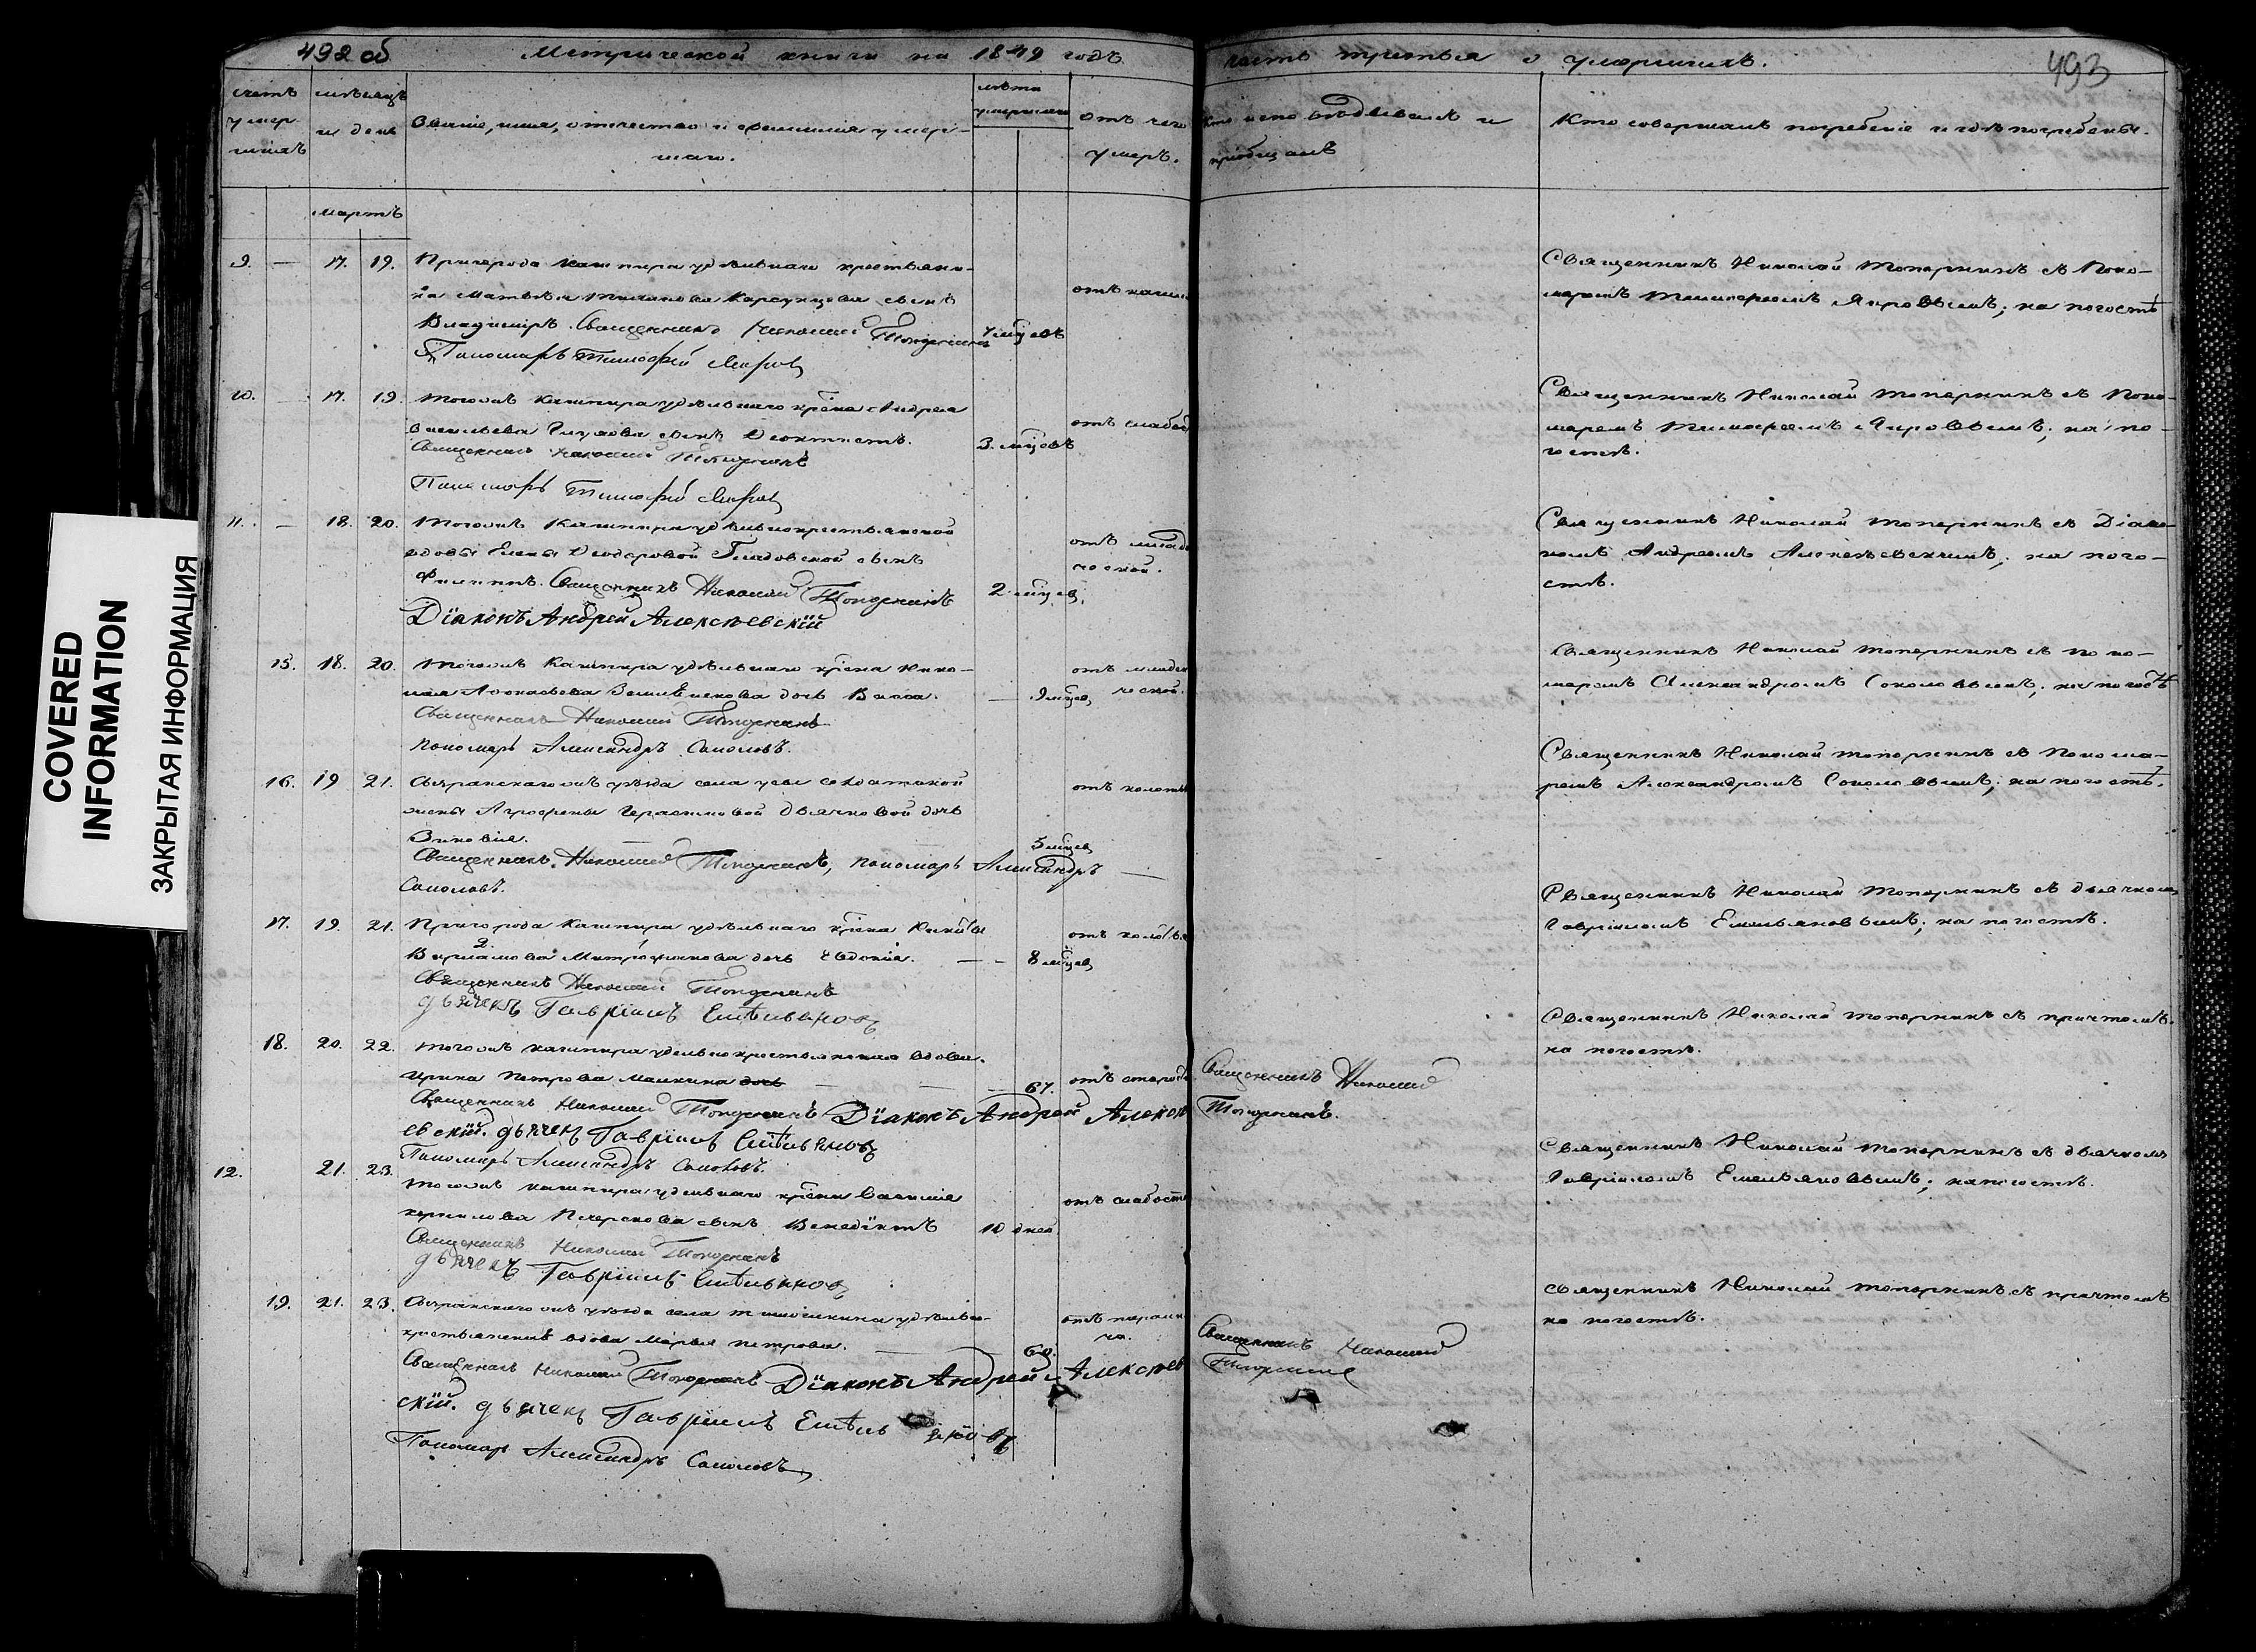 492 об
Метрической книги на 1849 годъ
часть третья о умершихъ.
493
счетъ умершихъ
мѣсяцъ и день
Званіе, имя, отечество и фамилія умершаго.
лѣта умершаго
отъ чего умеръ.
Кто исповѣдывалъ и пріобщалъ
Кто совершалъ погребеніе и гдѣ погребены.
мартъ
9. — 17. 19. Пригорода Кашпира удѣльнаго крестьяни-
на Матвѣя сынъ
Владиміръ. Священникъ Николай Топорнинъ
Пономарь Тимофей
отъ
мцовъ
Священникъ Николай Топорнинъ съ Поно-
маремъ Тимофеемъ; на погостѣ
10. 17. 19. Тогожъ Кашпира удѣльнаго крѣна Андрея
Васильева сынъ Ѳеоктистъ.
Священникъ Николай Топорнинъ
Пономарь Тимофей
3. мцовъ
отъ слабос
Священникъ Николай Топорнинъ съ Поно-
маремъ Тимофеемъ; на по-
гостѣ.
11. — 18. 20. Тогожъ Кашпира удѣльнокрестьянской
вдовы Елены Ѳеодоровой сынъ
Филиппъ. Священникъ Николай Топорнинъ
Діаконъ Андрей Алексѣевскій
2 мцов
отъ младе
ческой.
Священникъ Николай Топорнинъ съ Діако-
номъ Андреемъ Алексѣевскимъ; на пого-
стѣ.
15. 18. 20. Тогожъ Кашпира удѣльнаго крѣна Нико-
лая дочь Васса.
Священникъ Николай Топорнинъ
пономарь Александръ Соколовъ.
9 мцов
отъ младен
ческой.
Священникъ Николай Топорнинъ съ поно-
маремъ Александромъ Соколовымъ; на погостѣ
16. 19 21. Сызранскаго онъ уѣзда села Усы солдатской
жены Агрофены Герасимовой дочь
Зиновія.
Священникъ Николай Топорнинъ, пономарь Александръ
Соколовъ.
5 мцов
отъ
Священникъ Николай Топорнинъ съ Понома-
ремъ Александромъ Соколовымъ; на погостѣ.
17. 19. 21. Пригорода Кашпира удѣльнаго крѣна Никиты
Варламова Митрофанова дочь Евдокія.
Священникъ Николай Топорнинъ
дьячекъ Гавріилъ Емѣльяновъ
8 мцов
отъ
Священникъ Николай Топорнинъ съ дьячкомъ
Гавріиломъ Емельяновымъ; на погостѣ.
18. 20. 22. Тогожъ кашпира удельнокрестьянская вдова
Ирина Петрова дочь
Священникъ Николай Топорнинъ Діаконъ Андрей Алексѣ
евскій. дьячекъ Гавріилъ Емѣльяновъ
Пономарь Александръ Соколовъ.
67.
отъ старос
Священникъ Николай
Топорнинъ.
Священникъ Николай Топорнинъ съ причтомъ.
на погостѣ.
12. 21. 23. Тогожъ кашпира удельнаго крѣна
сынъ Венедіктъ
Священникъ Николай Топорнинъ
дьячекъ Гавріилъ Емѣльяновъ
10 дней
отъ слабости
Священникъ Николай Топорнинъ съ дьячкомъ
Гавріиломъ Емельяновымъ; на погостѣ.
19. 21. 23. Сызранскаго онъ уѣзда села Тимошкина удѣльно-
крестьянскія вдова Марья Петрова.
Священникъ Николай Топорнинъ Діаконъ Андрей Алексѣев
скій. дьячекъ Гавріилъ Емѣльяновъ
Пономарь Александръ Соколовъ
60.
отъ
Священникъ Николай
Топорнинъ
Священникъ Николай Топорнинъ съ причтомъ
на погостѣ.
COVERED
INFORMATION
ЗАКРЫТАЯ ИНФОРМАЦИЯ